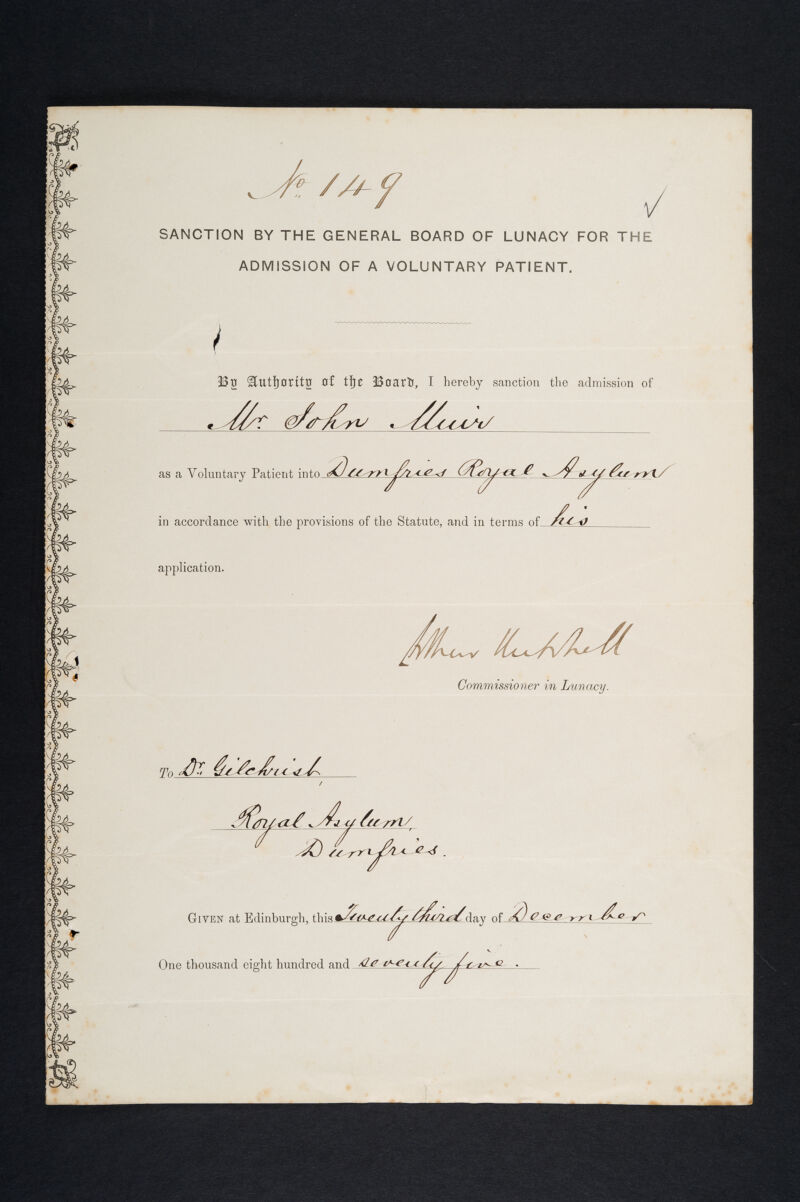 No. 149
SANCTION BY THE GENERAL BOARD OF LUNACY FOR THE
ADMISSION OF A VOLUNTARY PATIENT.
By Authority of the Board, I hereby sanction the admission of
Mr John Muir
as a Voluntary Patient into Dumfries Royal Asylum
in accordance with the provisions of the Statute, and in terms of his
application.
Arthur Mitchell
Commissioner in Lunacy.
To Dr. Gilchrist
Royal Asylum,
Dumfries.
GIVEN at Edinburgh, this Twenty third day of December
One thousand eight hundred and seventy five.